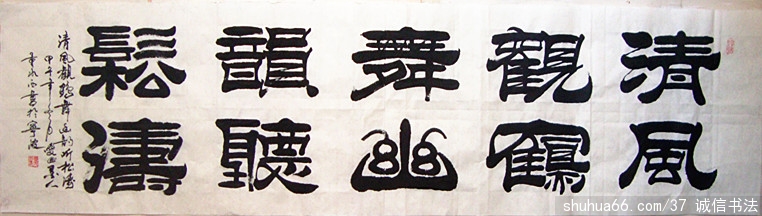 清風
觀鶴
舞幽
韻聽
鬆濤
清風觀鶴舞幽韵听松濤
甲午年
書於寧波
shuhua66.com/37 诚信书法